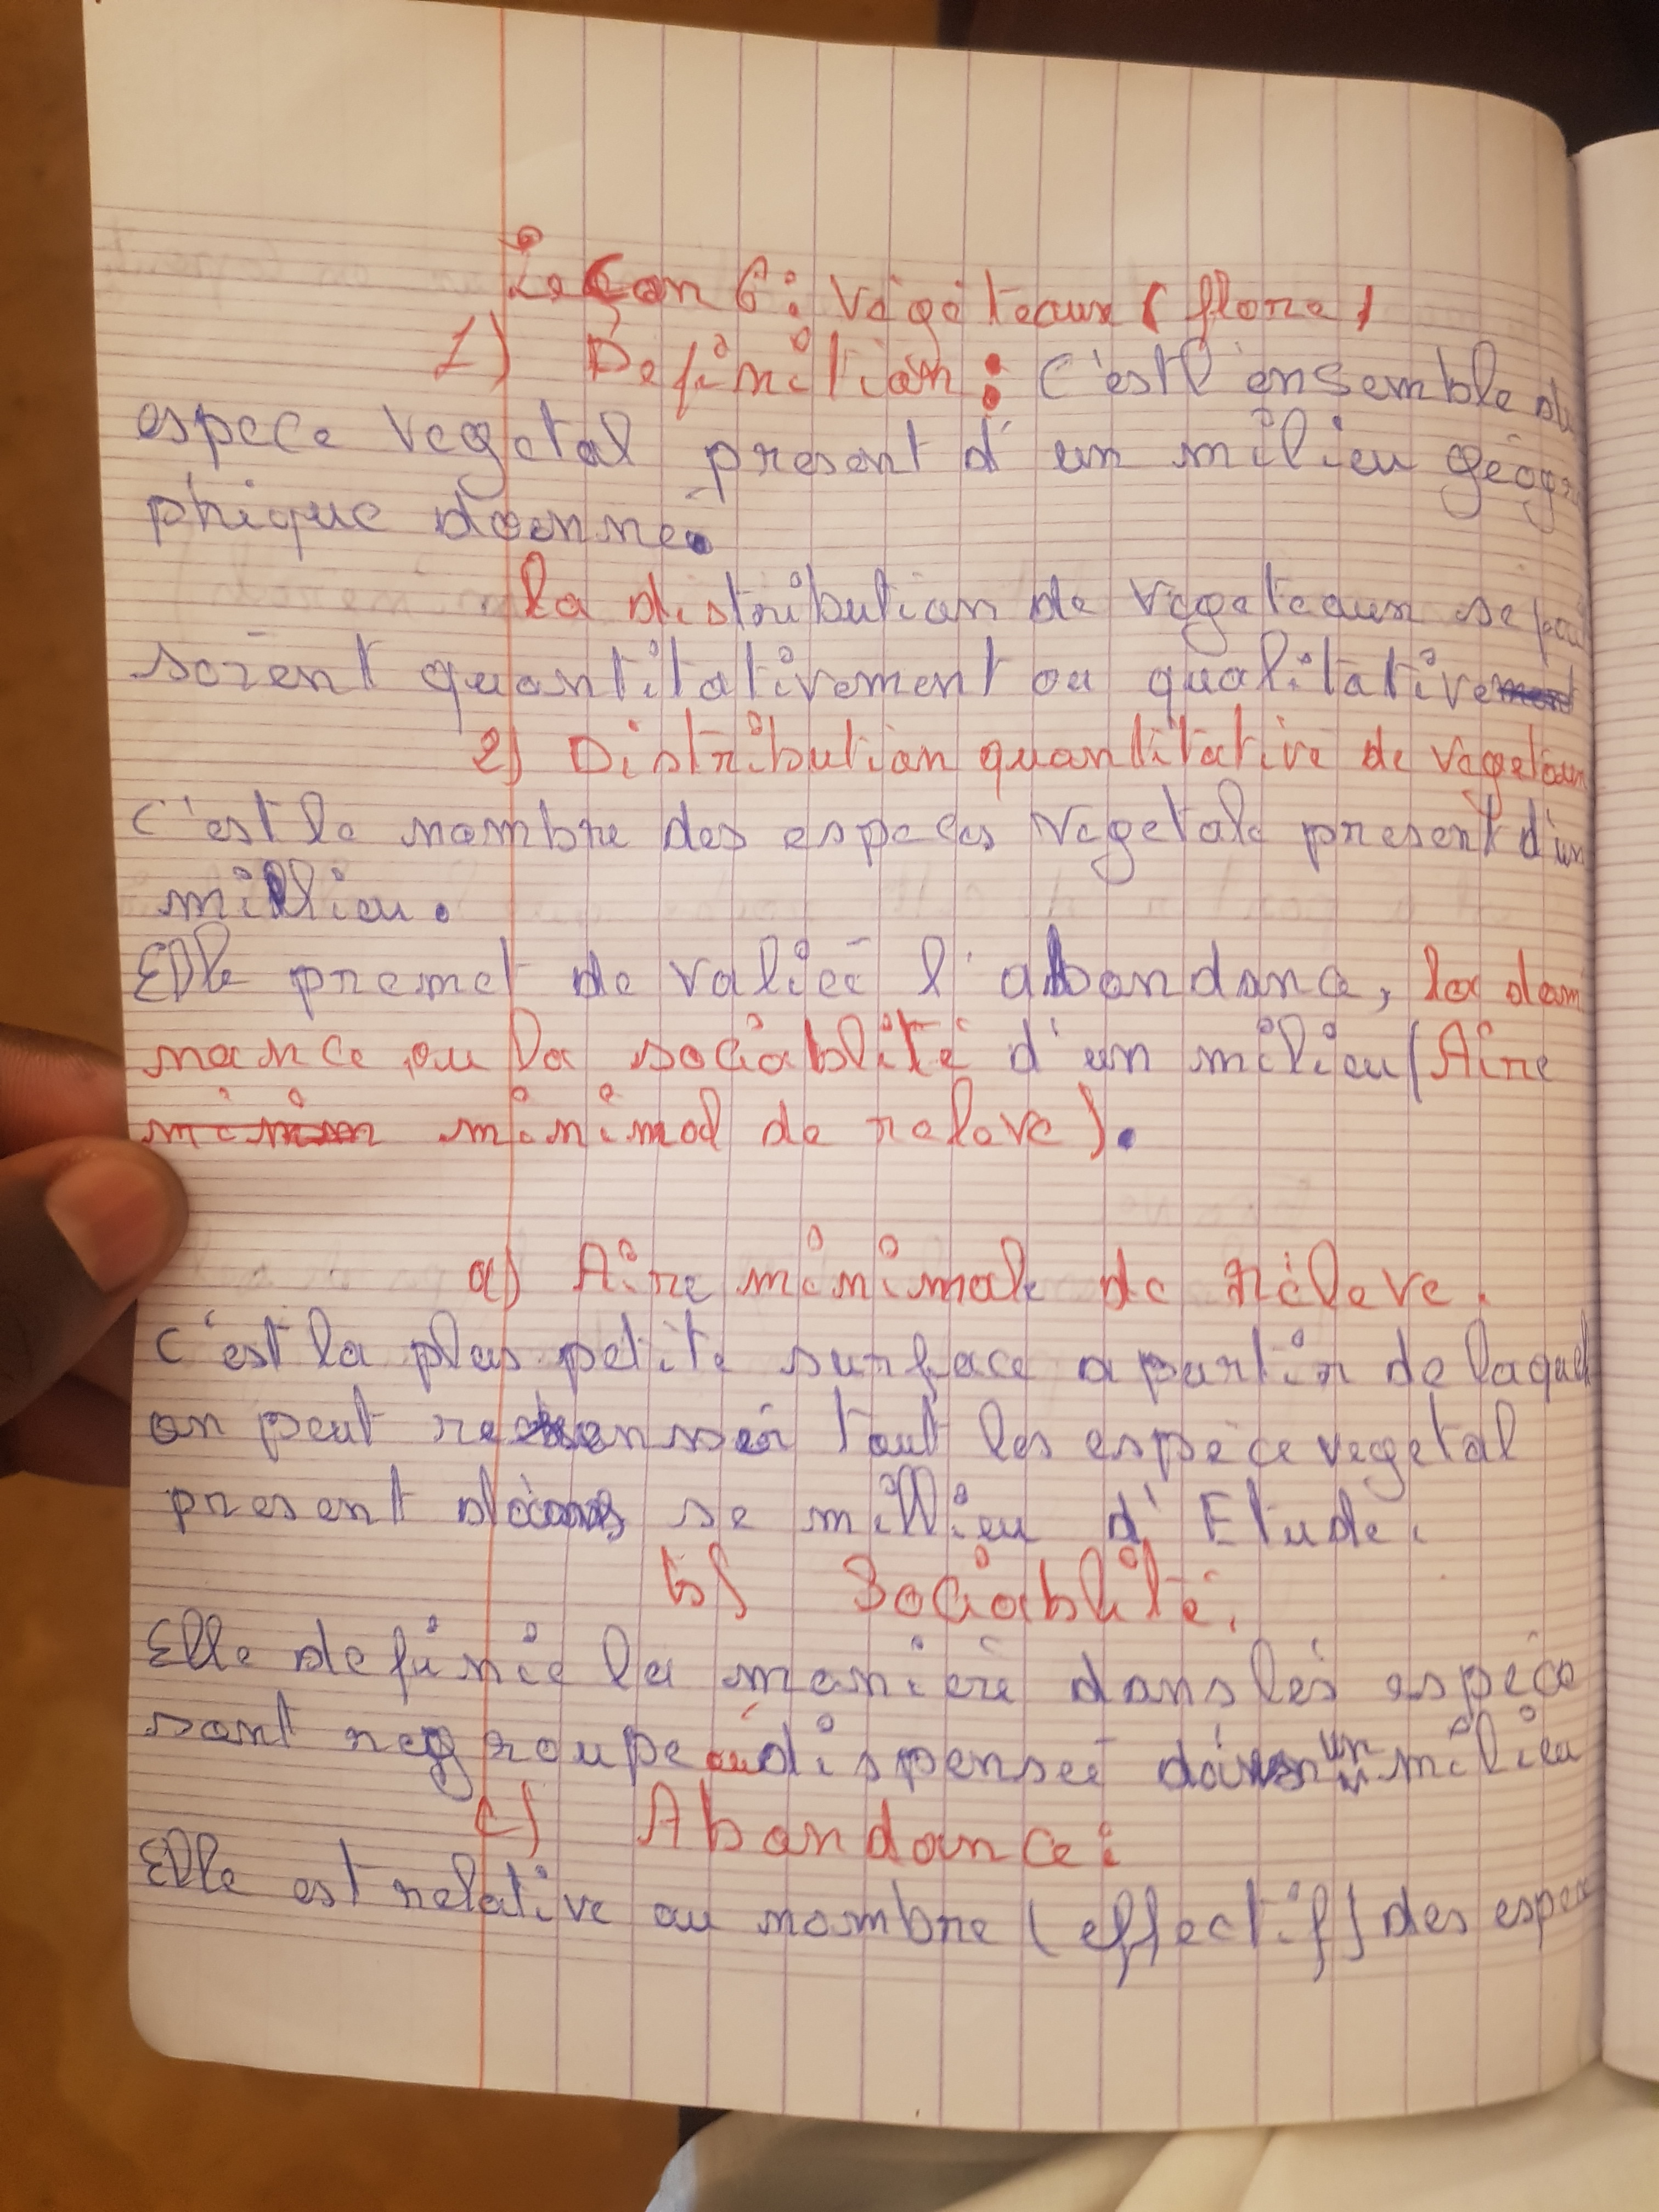 Leçon 6: Végéteaux (flore)
1) Définition: C'est l'ensemble de
espece vegetal present d'un milieu géogra
phique donné.
la distribution de vegeteaux se
soient quantitativement ou qualitative
2) Distribution quantitative de vegetaux
C'est le nombre des especes vegetale present d'un
millieu.
Elle premet de valieé l'abondance, la domi
nance ou la sociablité d'un milieu (Aire
minimal de releve).
a) Aire minimale de réleve.
C'est la plus petite surface a partir de laquel
on peut recenser tout les espèce vegetal
present dans se millieu d'Etude.
b) Sociablité.
Elle definie la manière dans les espèce
sont regroupé ou disperseé dans un milieu
c) Abondance:
Elle est relative au nombre (effectif) des espece